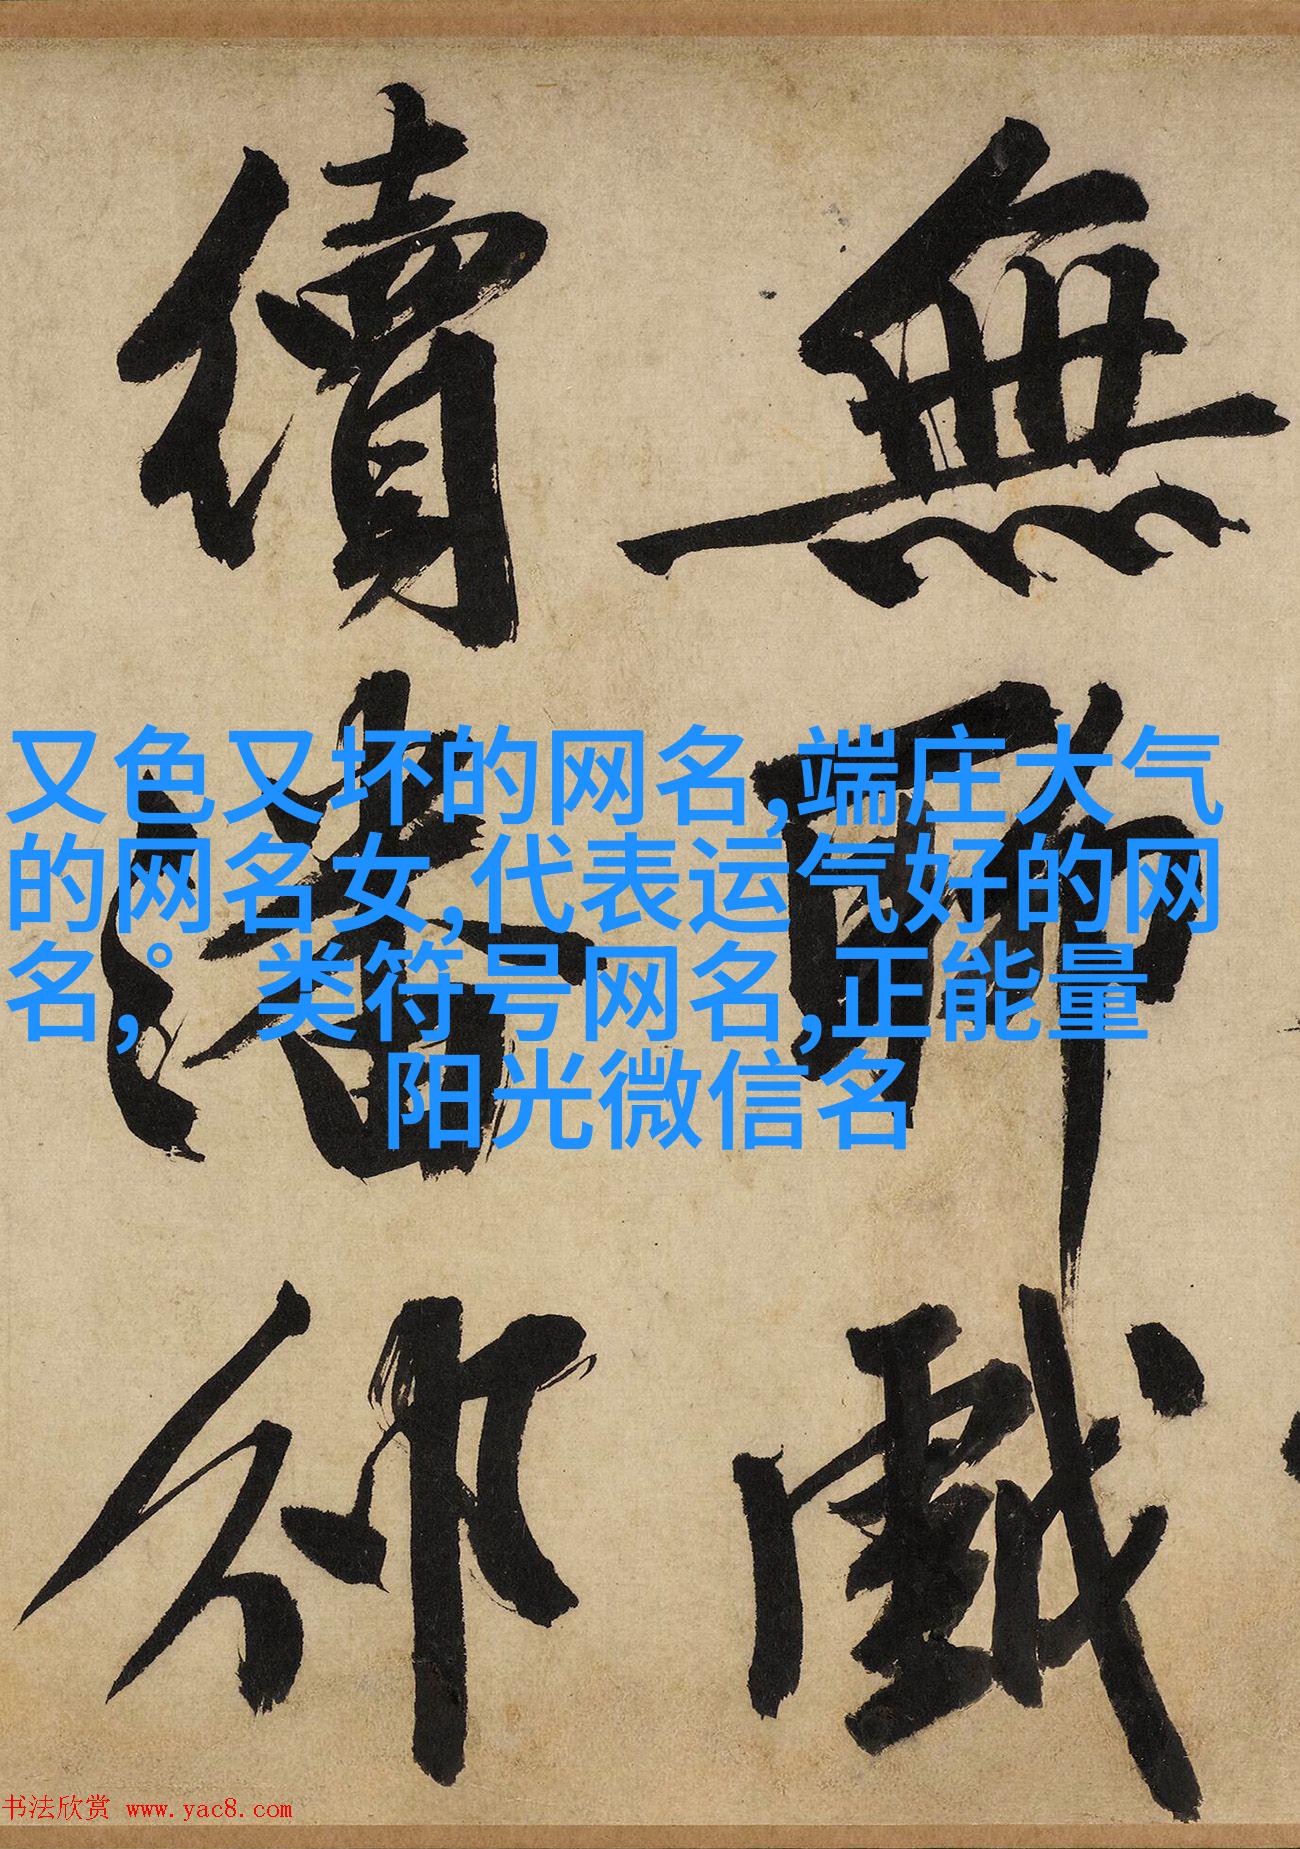 無
聊
戲
續
潘
郎
又色又坏的网名,端庄大气
的网名女,代表运气好的网
名,° 类符号网名,正能量
阳光微信名
书法欣赏 www.yac8.com